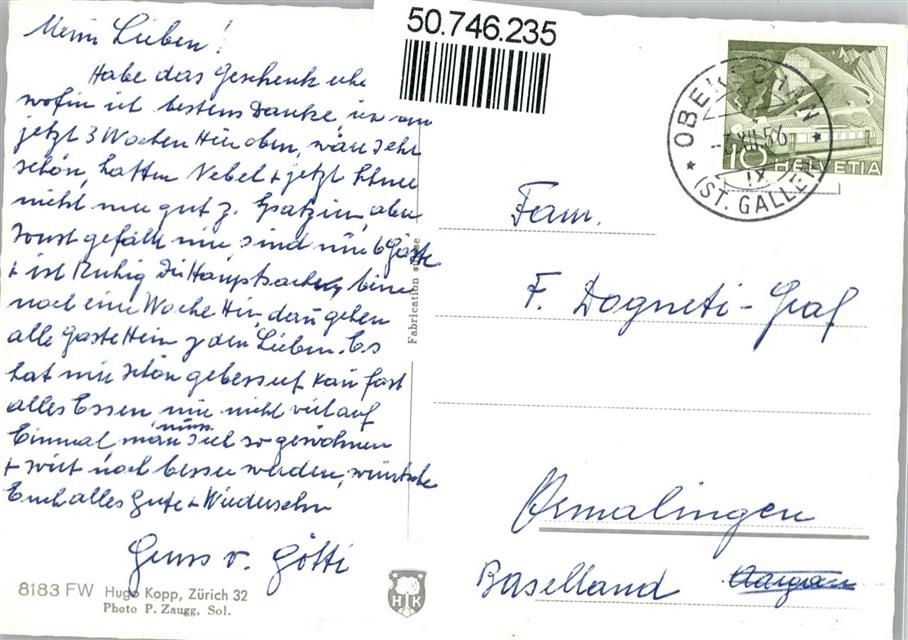 Meine Lieben!
50.746.235
Habe das Geschenk
wofür ich bestens Danke, bin
jetzt 3 Wochen Hir oben, wär sehr
schön, hatten Nebel + jetzt Schnee
nicht gut z. Spatziern, aber
sonst gefällt mir sind nur 6 Gäste
+ ist Ruhig Die Hauptsache, bin
noch eine Woche Hir dan gehen
alle Gäste Heim z den Lieben. Es
hat mir schon gebessert kan fast
alles Essen nur nicht viel auf
Einmal muss
man sich so gewöhnen
+ wirt noch besser werden, wünsche
Euch alles Gute + Wiedersehn
Gruss v. Götti
8183 FW Hugo Kopp, Zürich 32
Photo P. Zaugg, Sol.
Fabrication suisse
HK
OBERSCHAN
-3.XII.56
IX
(ST. GALLEN)
10 HELVETIA
Fam.
F. Dogneti-Graf
Ormalingen
Baselland Aargau